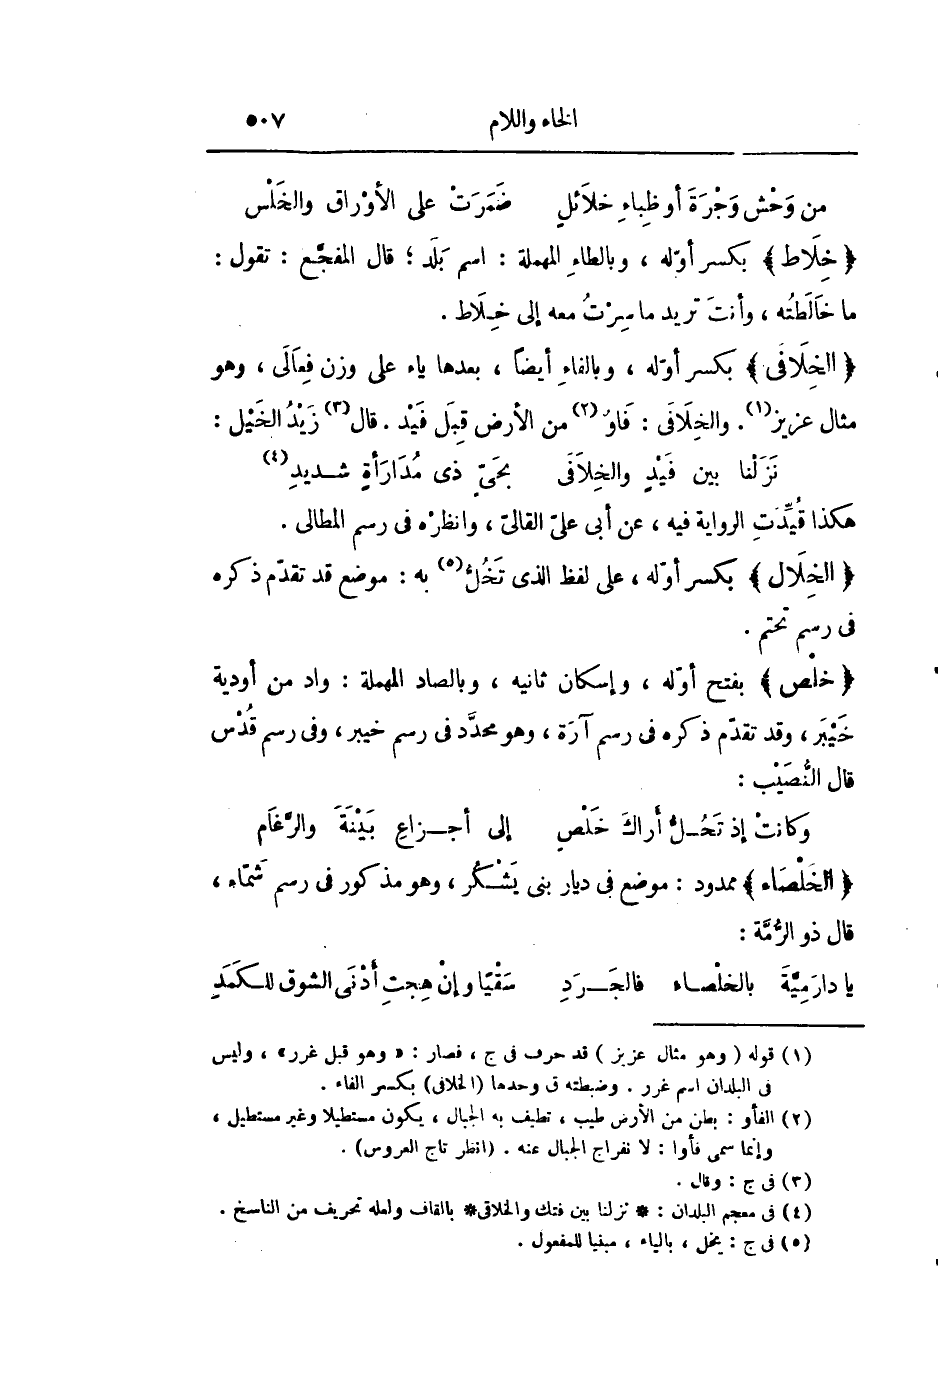 الخاء واللام ٥٠٧
من وَحْش وَجْرَةَ أو ظِباءِ خلاَئلٍ ضَمَرَتْ على الأوْراق والخَلْس
﴿ خِلَاط ﴾ بكسر أوّله ، وبالطاءِ المهملة : اسم بَلَد ؛ قال المفجَّع : تقول :
ما خَالَطتُه ، وأنتَ تريد ما سِرْتُ معه إلى خِلَاط .
﴿ الخِلَافَى ﴾ بكسر أوّله ، وبالفاءِ أيضاً ، بعدها ياء على وزن فِعَالَى ، وهو
مثال عزيز(١). والخِلَافَى : فَاوٌ(٢) من الأرض قِبَل فَيْد . قال(٣) زَيْدُ الخَيْل :
نَزَلْنا بين فَيْدٍ والخِلاَفَى بحَىّ ذى مُدَارَأةٍ شديدِ(٤)
هكذا قُيِّدَتِ الرواية فيه ، عن أبى علىّ القالىّ ، وانظرْه فى رسم المطالى .
﴿ الخِلَال ﴾ بكسر أوّله ، على لفظ الذى تَخُلُّ(٥) به : موضع قد تقدّم ذكره
فى رسم تختم .
﴿ خلْص ﴾ بفتح أوّله ، وإسكان ثانيه ، وبالصاد المهملة : واد من أودية
خَيْبَر ، وقد تقدّم ذكره فى رسم آرَة ، وهو محدَّد فى رسم خيبر ، وفى رسم قُدْس
قال النُّصَيْب :
وكانتْ إذ تَحُلُّ أراكَ خَلْصٍ إلى أجزاعِ بَيْنَةَ والرَّغَامِ
﴿ الخَلْصَاء ﴾ ممدود : موضع فى ديار بنى يَشْكُر ، وهو مذكور فى رسم شَمّاء ،
قال ذو الرُّمَّة :
يا دارَ مِيَّةَ بالخلْصاء فالجَرَدِ سَقْيًا وإنْ هِجتِ أدْنَى الشوق للكَمَدِ
(١) قوله ( وهو مثال عزيز ) قد حرف فى ج ، فصار : « وهو قبل غرر» ، وليس
فى البلدان اسم غرر . وضبطته ق وحدها (الخلافى) بكسر الفاء .
(٢) الفأو : بطن من الأرض طيب ، تطيف به الجبال ، يكون مستطيلا وغير مستطيل ،
وإنما سمى فأوا : لا نفراج الجبال عنه . (انظر تاج العروس) .
(٣) فى ج : وقال .
(٤) فى معجم البلدان : * نزلنا بين فتك والخلاقى* بالقاف ولعله تحريف من الناسخ .
(٥) فى ج : يخل ، بالياء ، مبنيا للمفعول .